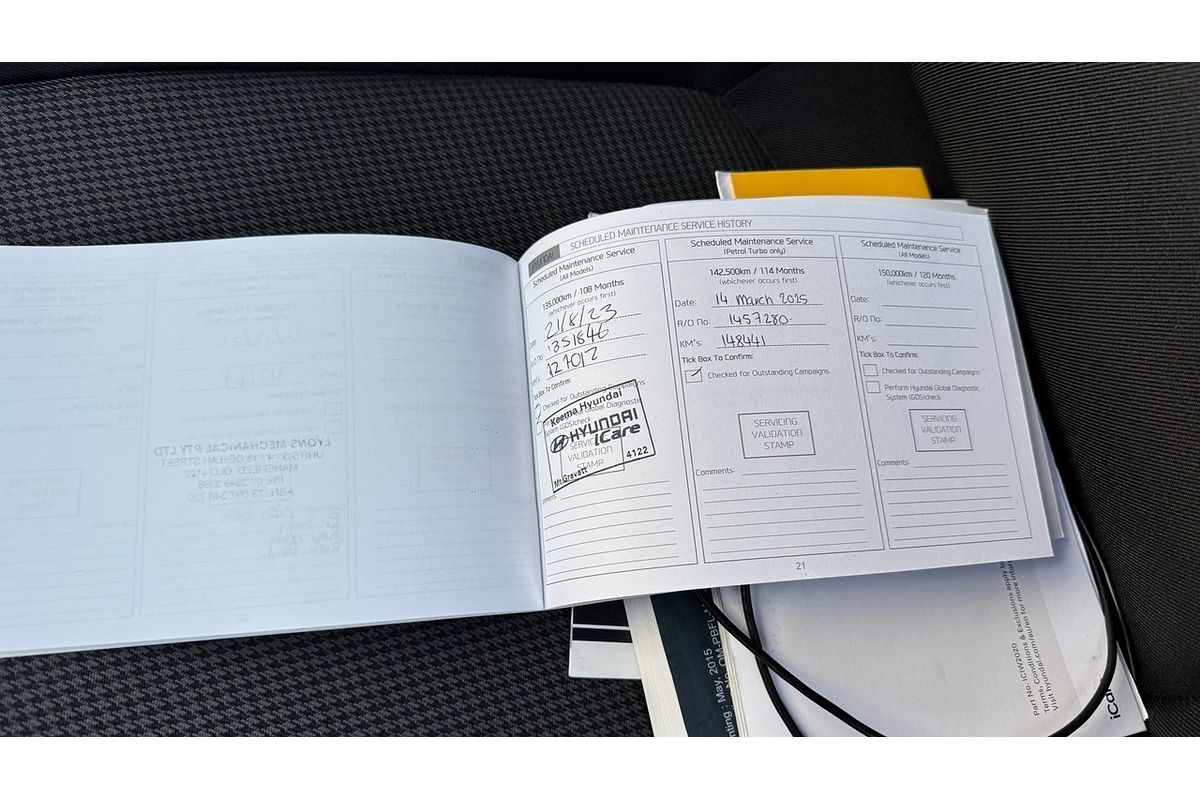 HYUNDAI
SCHEDULED MAINTENANCE SERVICE HISTORY
Scheduled Maintenance Service
(All Models)
135,000km / 108 Months
(whichever occurs first)
Date: 21/8/23
R/O No: 1351846
KM's: 127012
Tick Box To Confirm:
Checked for Outstanding Campaigns
Perform Hyundai Global Diagnostic
System (GDS)check
Keema Hyundai
HYUNDAI
iCare
Mt Gravatt 4122
SERVICING
VALIDATION
STAMP
Comments:
Scheduled Maintenance Service
(Petrol Turbo only)
142,500km / 114 Months
(whichever occurs first)
Date: 14 March 2025
R/O No: 1457280
KM's: 148441
Tick Box To Confirm:
Checked for Outstanding Campaigns
SERVICING
VALIDATION
STAMP
Comments:
Scheduled Maintenance Service
(All Models)
150,000km / 120 Months
(whichever occurs first)
Date:
R/O No:
KM's:
Tick Box To Confirm:
Checked for Outstanding Campaigns
Perform Hyundai Global Diagnostic
System (GDS)check
SERVICING
VALIDATION
STAMP
Comments:
21
LYONS MECHANICAL PTY LTD
MANSFIELD QLD 4122
nting : May, 2015
Part No. ICIW2020
Terms, Conditions & Exclusions apply
Visit hyundai.com/au/en for more